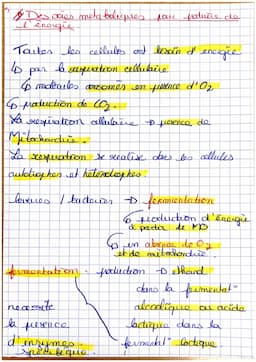 Des voies métaboliques pour produire de
l'énergie
Toutes les cellules ont besoin d'énergie
↳ par la respiration cellulaire
↳ molécules en présence d'O2
↳ production de CO2.
La respiration cellulaire → présence de
Mitochondrie.
La respiration se réalise dans les cellules
autotrophes et hétérotrophes.
levures / bactéries → fermentation
↳ production d'énergie
à partir de MO
↳ en absence de O2
et de mitochondrie.
fermentation. production → éthanol
dans la fermentat°
nécessite alcoolique ou acide
la présence lactique dans la
d'enzymes. ferment° lactique.
spécifique.